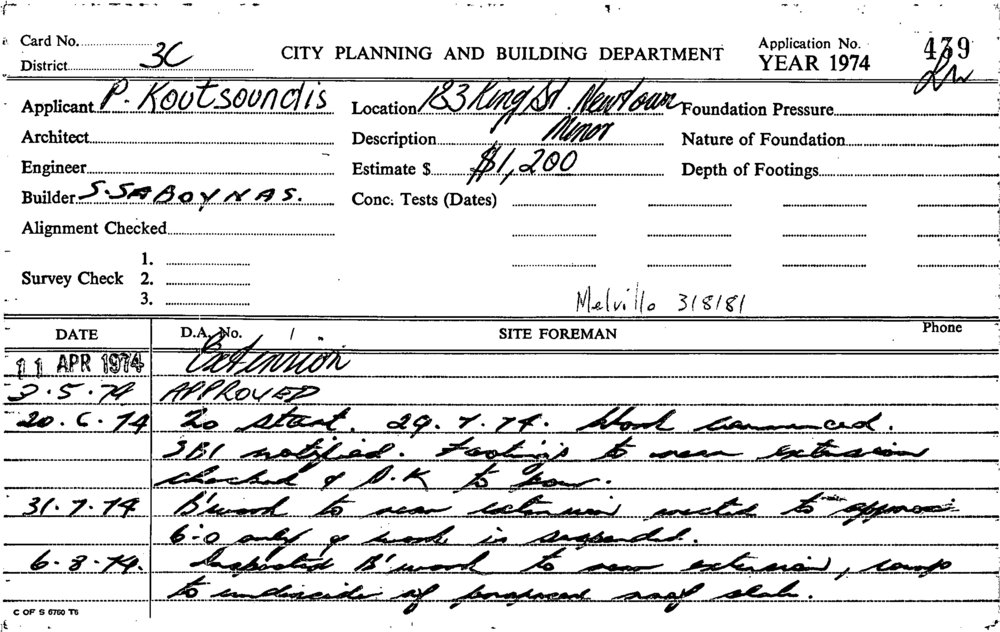 Card No.
District 3C
CITY PLANNING AND BUILDING DEPARTMENT
Application No. 439
YEAR 1974
Applicant P. Koutsoundis
Location 183 King St. Newtown
Foundation Pressure
Architect
Description Minor
Nature of Foundation
Engineer
Estimate $ $1,200
Depth of Footings
Builder S. SABOYNAS.
Conc. Tests (Dates)
Alignment Checked
Survey Check
1.
2.
3.
3/8/81
DATE D.A. No. / SITE FOREMAN Phone
11 APR 1974 Extension
3.5.74 APPROVED
20.6.74 To start. 29.7.74. Work commenced.
3BI notified. Footings to rear extension
checked & O.K to pour.
31.7.74 B'work to rear extension erected to approx
6-0 only & work is suspended.
6.8.74. Inspected B'work to rear extension,
to underside of proposed roof slab.
C OF S 6760 T6